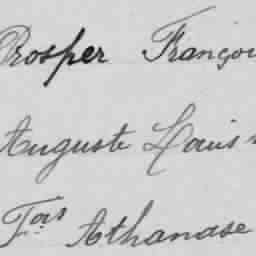 Prosper Françoi
Auguste Louis
Fois Athanase